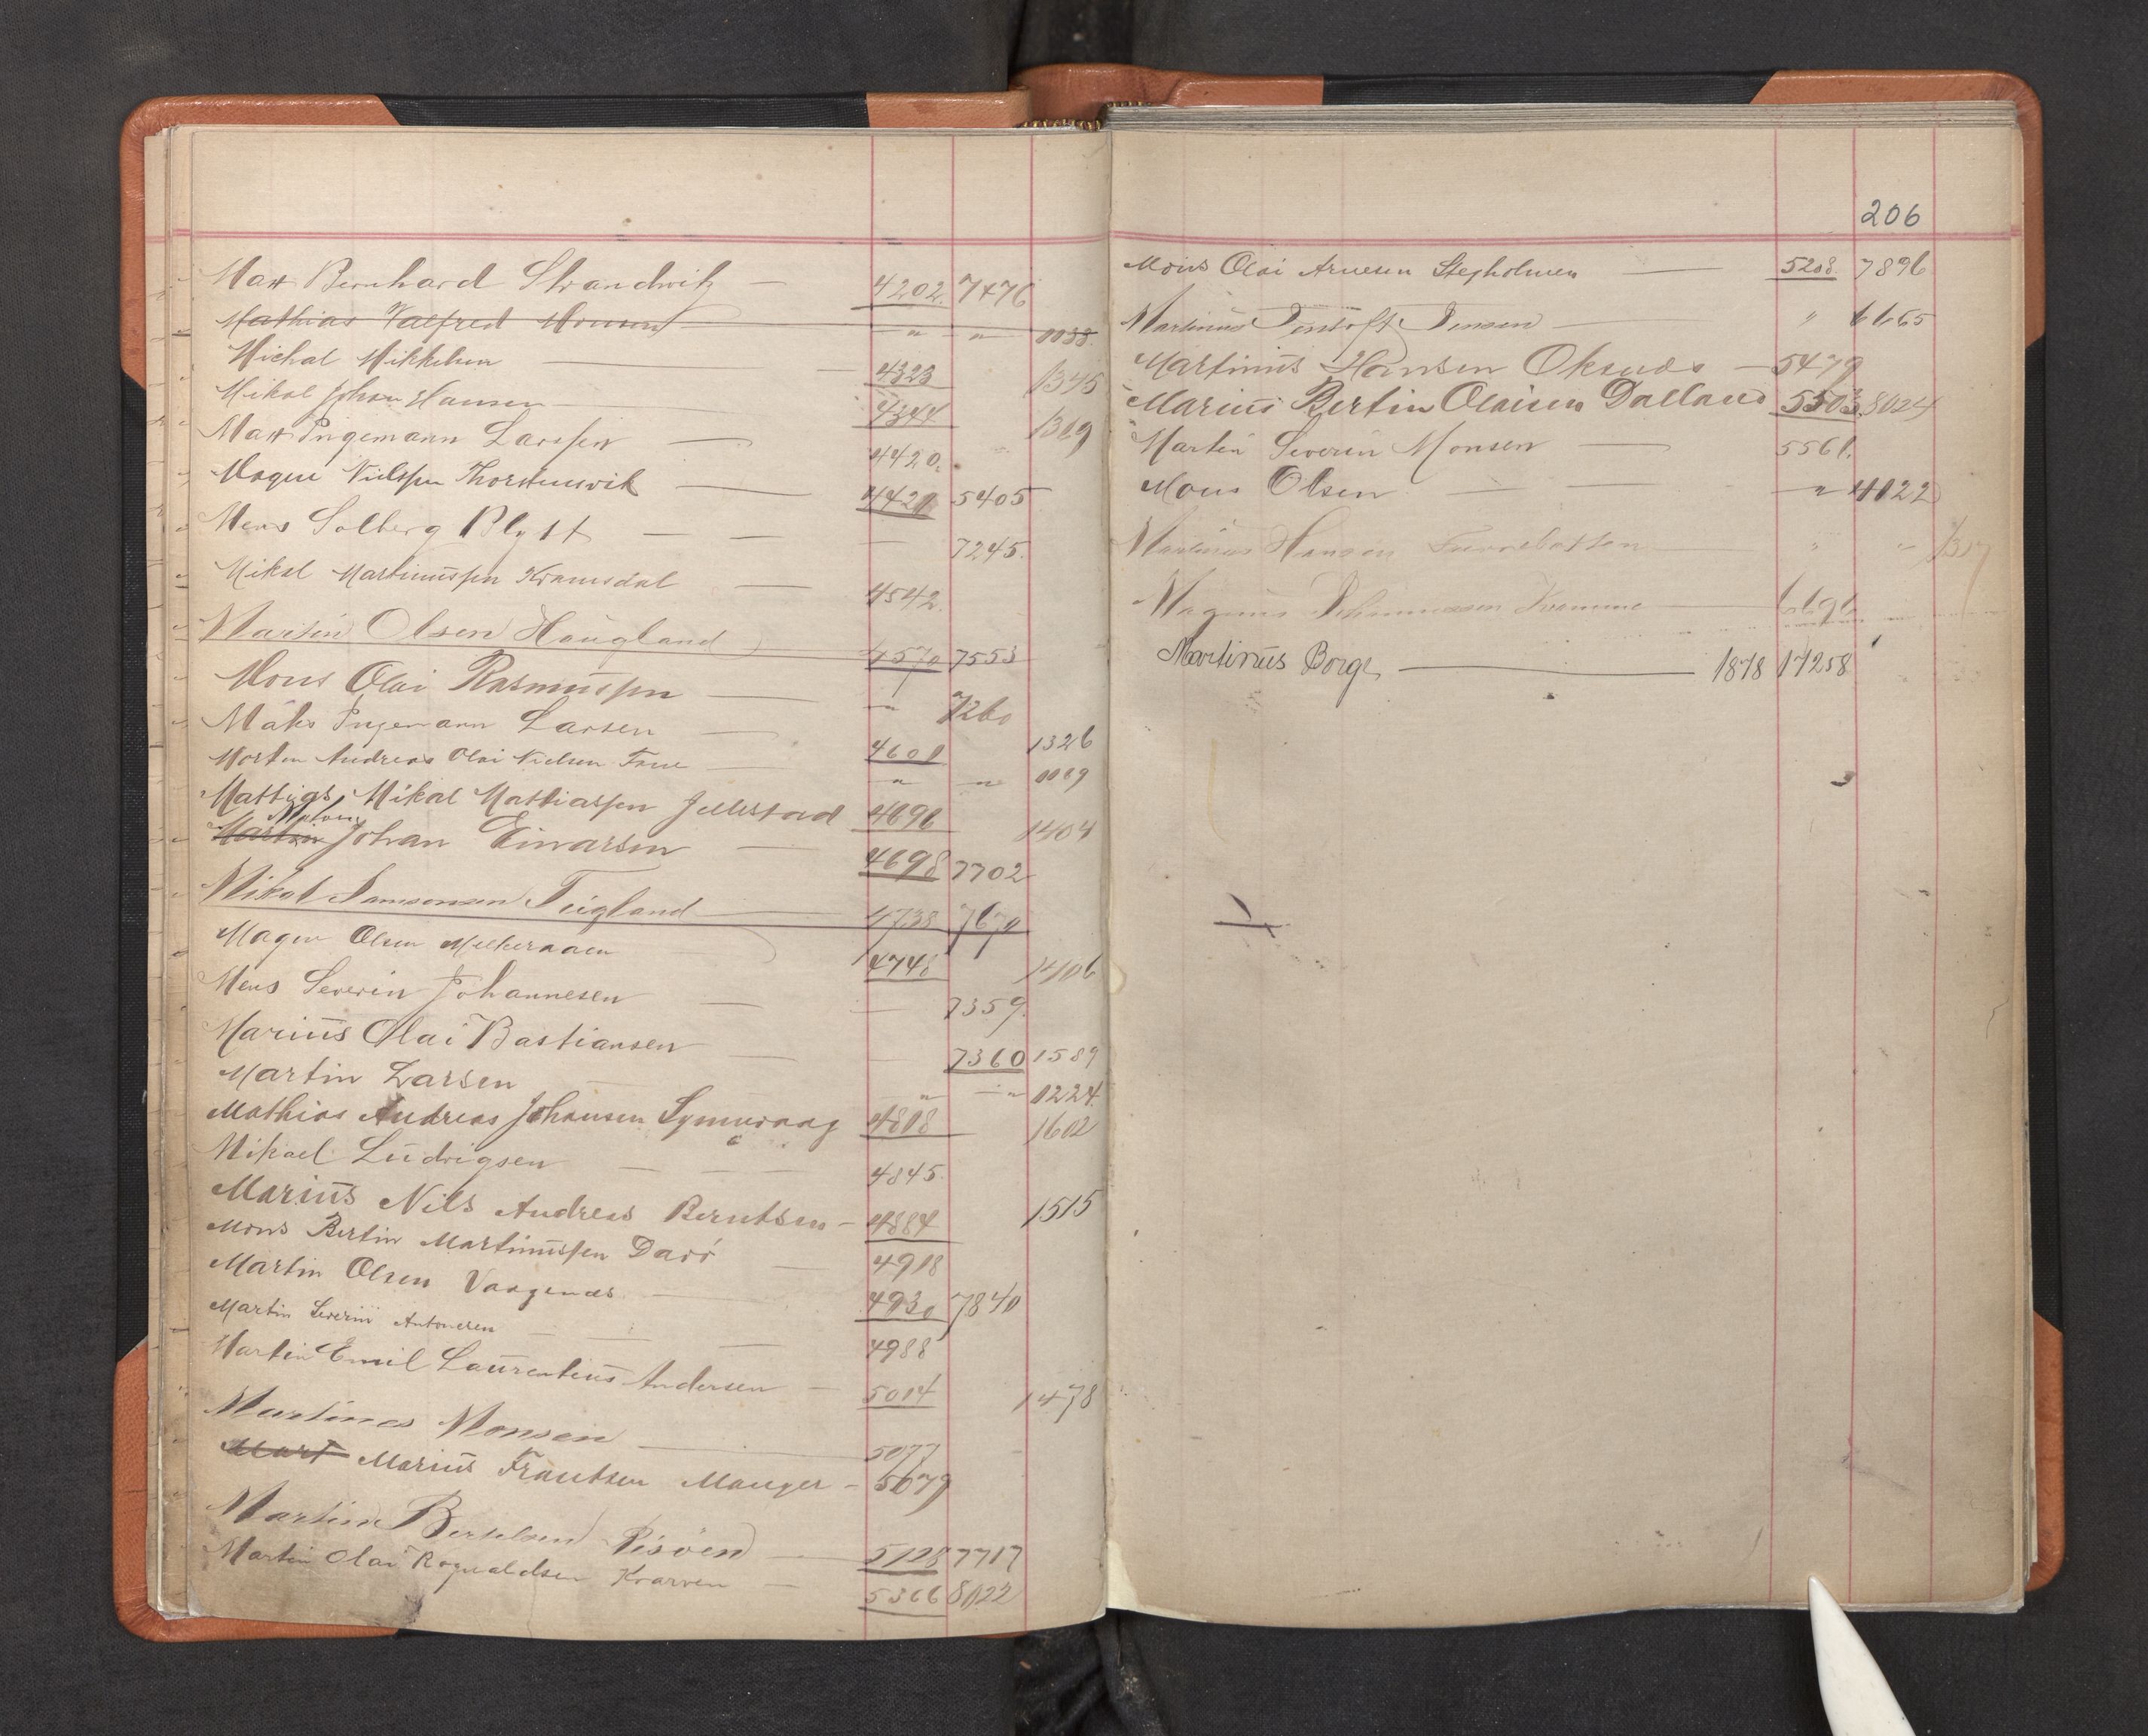 Max Bernhard Strandvik — 4202. 7476
Mathias Valfred Monsen " " 1038.
Michal Mikkelsen — 4323 1345
Mikal Johan Hansen — 4344 1309
Max Ingemann Larssen — 4420.
Mogens Nielssen — 4421 5405
Mons Solberg Blytt — — — 7245.
Mikal Martinussen — 4542.
Martin Olsen Haugland 4570 7553
Mons Olai Rasmussen — " 7260
Maks Ingemann Larsen — 4601 1326
Morten Andreas Olai Nielsen — " " 1089
Mattias Mikal Mathiassen 4696 1404
Martin Johan Einarsen — 4698 7702
Mikal Samsonsen Teigland — 4738 7670
Olsen 4748 1406
Mons Severin Johannesen — — 7359.
Marius Olai Bastiansen — — 7360 1589
Martin Larsen — " " 1224.
Mathias Andreas Johansen 4818 1602
Mikael Ludvigsen — — — 4845.
Marius Nils Andreas Berntsen — 4884 1515
Mons Bertin Martinussen — 4918
Martin Olsen Vaagenæs — 4930 7840
Martin Severin Antonesen — — — 4988
Martin Emil Laurentius Andersen — 5014 1478
Martines Monsen — 5077
Mart Marius Frantsen Manger — 5679
Martin Bertelsen — 5128 7717
Martin Olai Rognaldsen Kvarven — 5366 8022
206
Mons Olai Arnesen — 5208. 7896
Martinus Jensen — " 6665
Martinus Hansen — 5479
Marius Bertin Olaisen Dalland 5503. 8024
Martin Severin Monsen — 5561.
Mons Olsen — — — " 4122
Martinus Hansen " "
Magnus
Martinus Borge — 1878 17258